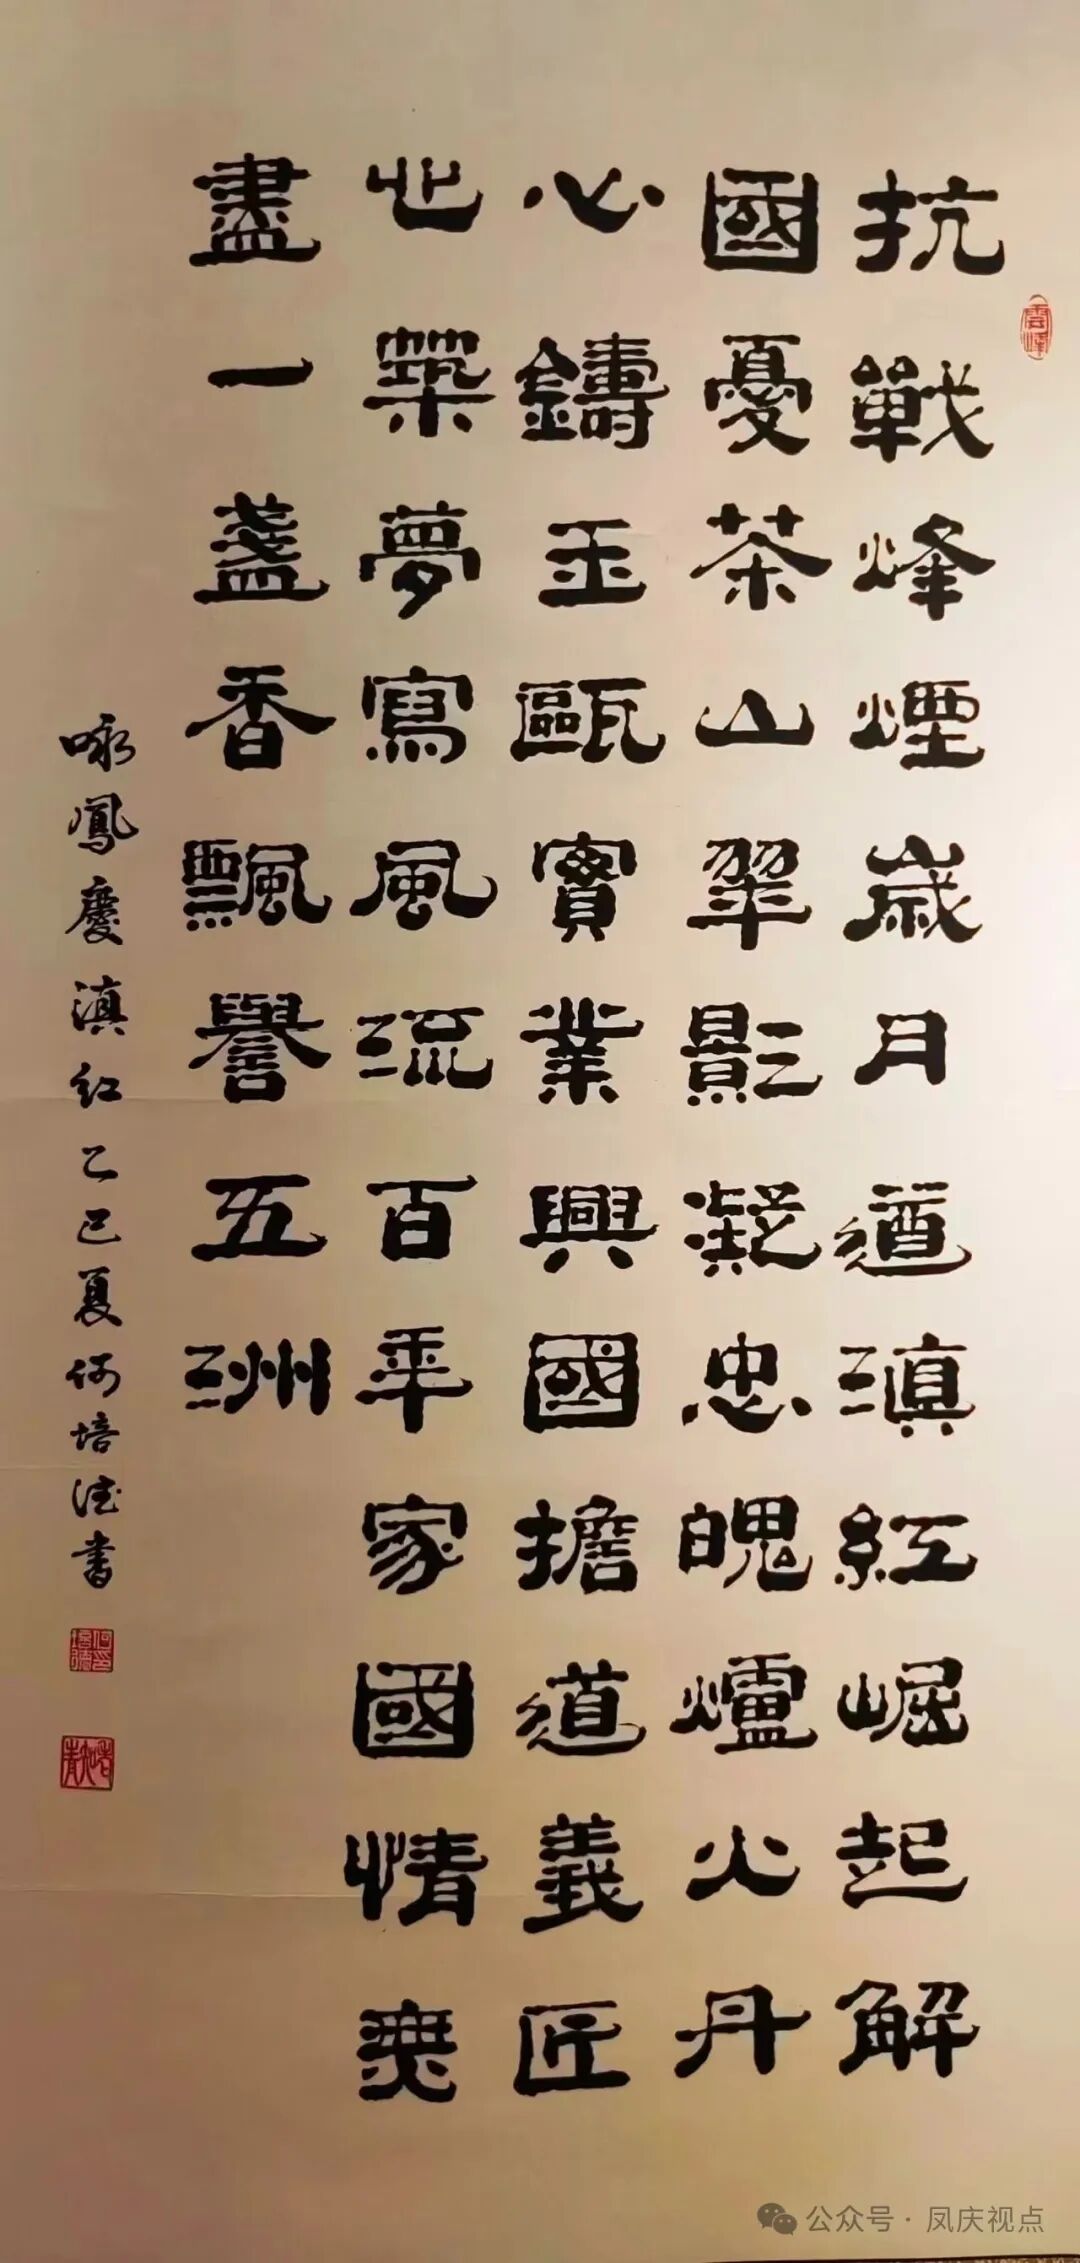 抗戰烽煙歲月遒滇紅崛起解
國憂茶山翠影凝忠魄爐火丹
心鑄玉甌實業興國擔道義匠
心築夢寫風流百年家國情無
盡一盞香飄譽五洲
咏鳳慶滇红乙巳夏何培德書
公众号·凤庆视点